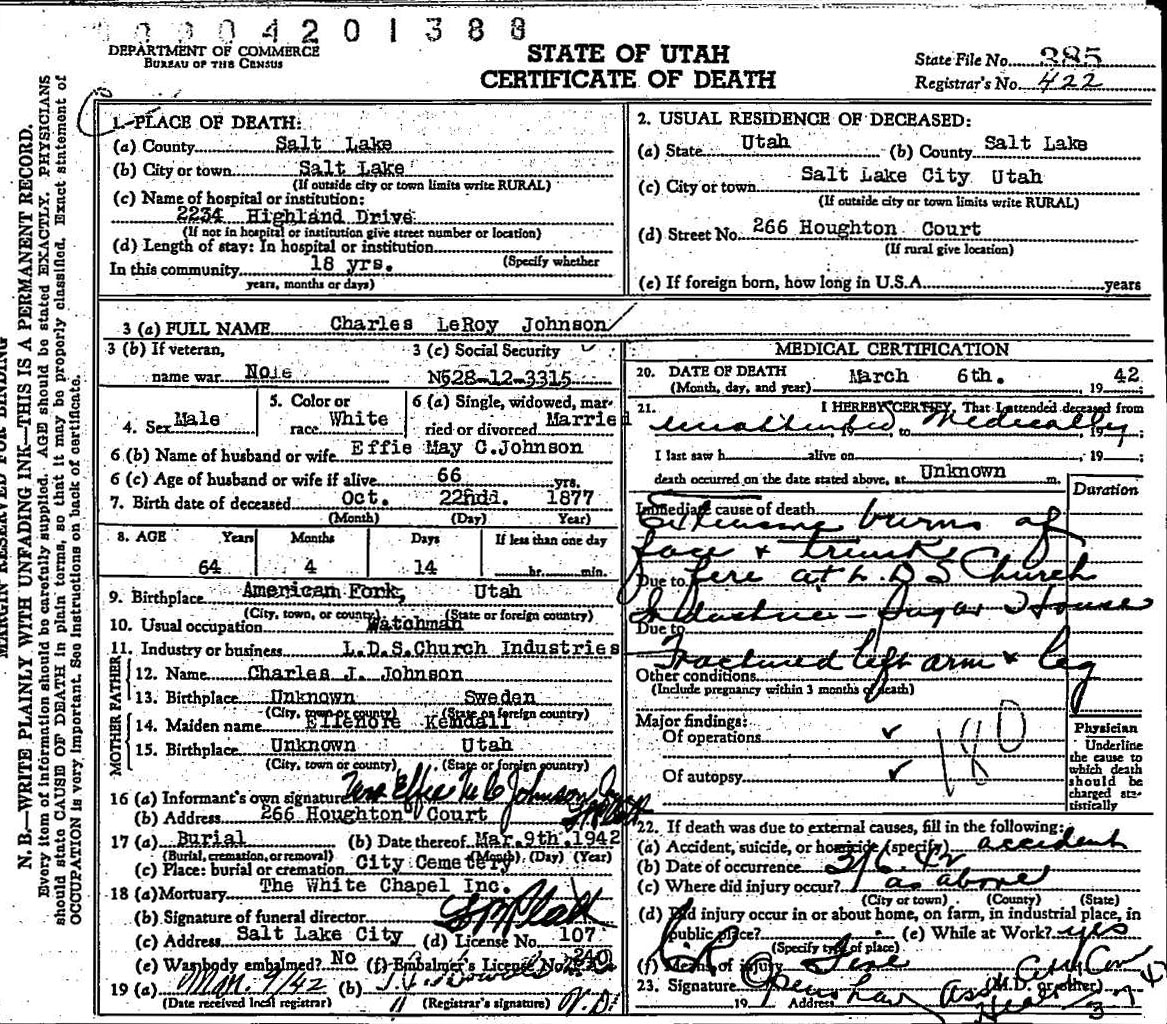 0 0 0 4 2 0 1 3 8 8
DEPARTMENT OF COMMERCE
BUREAU OF THE CENSUS
STATE OF UTAH
CERTIFICATE OF DEATH
State File No. 385
Registrar's No. 422
MARGIN RESERVED FOR BINDING
N. B.—WRITE PLAINLY WITH UNFADING INK—THIS IS A PERMANENT RECORD.
Every item of information should be carefully supplied. AGE should be stated EXACTLY. PHYSICIANS
should state CAUSE OF DEATH in plain terms, so that it may be properly classified. Exact statement of
OCCUPATION is very important. See Instructions on back of certificate.
1. PLACE OF DEATH:
(a) County Salt Lake
(b) City or town Salt Lake
(If outside city or town limits write RURAL)
(c) Name of hospital or institution:
2234 Highland Drive
(If not in hospital or institution give street number or location)
(d) Length of stay: In hospital or institution
(Specify whether
In this community 18 yrs.
years, months or days)
2. USUAL RESIDENCE OF DECEASED:
(a) State Utah (b) County Salt Lake
(c) City or town Salt Lake City Utah
(If outside city or town limits write RURAL)
(d) Street No. 266 Houghton Court
(If rural give location)
(e) If foreign born, how long in U.S.A. years
3 (a) FULL NAME Charles LeRoy Johnson
3 (b) If veteran,
name war Noie
3 (c) Social Security
N528-12-3315
4. Sex Male
5. Color or
race White
6 (a) Single, widowed, mar-
ried or divorced Married
6 (b) Name of husband or wife Effie May C.Johnson
6 (c) Age of husband or wife if alive 66 yrs.
7. Birth date of deceased Oct. 22ndd. 1877
(Month) (Day) Year)
8. AGE Years Months Days If less than one day
64 4 14 hr. min.
9. Birthplace American Fork, Utah
(City, town, or county) (State or foreign country)
10. Usual occupation Watchman
11. Industry or business L.D.S.Church Industries
FATHER
12. Name Charles J. Johnson
13. Birthplace Unknown Sweden
(City, town or county) (State or foreign country)
MOTHER
14. Maiden name Ellenore Kendall
15. Birthplace Unknown Utah
(City, town or county) (State or foreign country)
16 (a) Informant's own signature Mrs Effie M C Johnson
(b) Address 266 Houghton Court
17 (a) Burial (b) Date thereof Mar.9th.1942
(Burial, cremation, or removal) (Month) (Day) (Year)
(c) Place: burial or cremation City Cemetery
18 (a) Mortuary The White Chapel Inc.
(b) Signature of funeral director
(c) Address Salt Lake City (d) License No. 107
(e) Was body embalmed? No (f) Embalmer's License No. 240
19 (a) Mar. 9/42 (b)
(Date received local registrar) (Registrar's signature)
MEDICAL CERTIFICATION
20. DATE OF DEATH
(Month, day, and year) March 6th. , 19 42
21. I HEREBY CERTIFY, That I attended deceased from
unattended , 19 to Medically , 19 ;
I last saw h alive on , 19 ;
death occurred on the date stated above, at Unknown m.
Duration
Immediate cause of death
Extensive burns of
face & trunk
Due to fire at L.D S Church
Industries - Sugar House
Due to
Fractured left arm & leg
Other conditions
(Include pregnancy within 3 months of death)
Major findings:
Of operations
Of autopsy
180
Physician
Underline
the cause to
which death
should be
charged sta-
tistically
22. If death was due to external causes, fill in the following:
(a) Accident, suicide, or homicide (specify) accident
(b) Date of occurrence 3/6.42
(c) Where did injury occur? as above
(City or town) (County) (State)
(d) Did injury occur in or about home, on farm, in industrial place, in
public place? (e) While at Work? yes
(Specify type of place)
(f) Means of injury Fire
23. Signature (M.D. or other)
19 Address